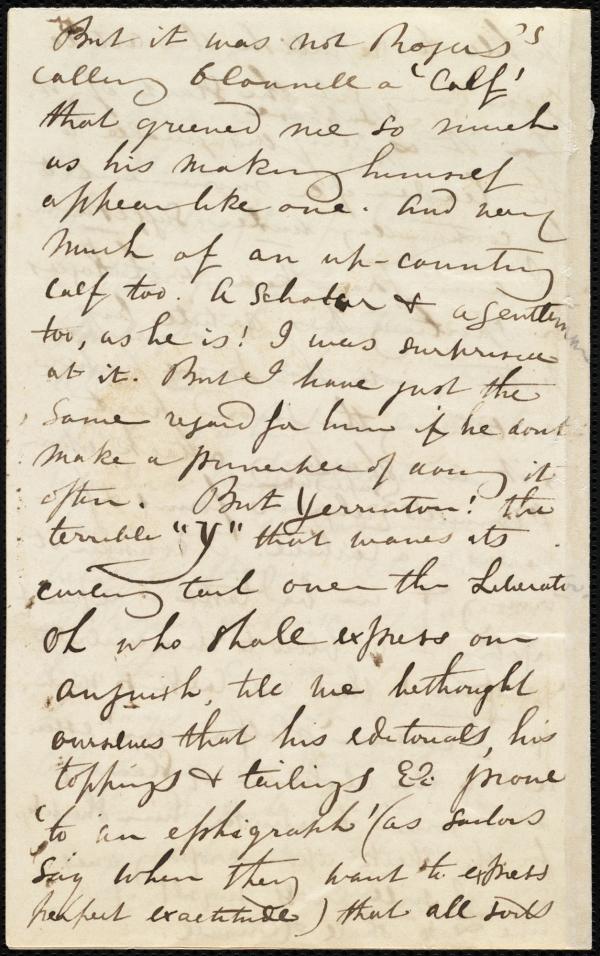 But it was not Rogers's
calling O'Connell a 'Calf'
that grieved me so much
as his making himself
appear like one. And very
much of an up-country
calf too. A Scholar & a gentleman
too, as he is! I was surprised
at it. But I have just the
same regard for him if he dont
make a practice of doing it
often. But Yerrinton! the
terrible "Y" that waves its
curling tail over the Liberator
Oh who shall express our
anguish, till we bethought
ourselves that his editorials, his
toppings & tailings &c prove
'to an ephigraph' (as sailors
say when they want to express
perfect exactitude) that all sorts